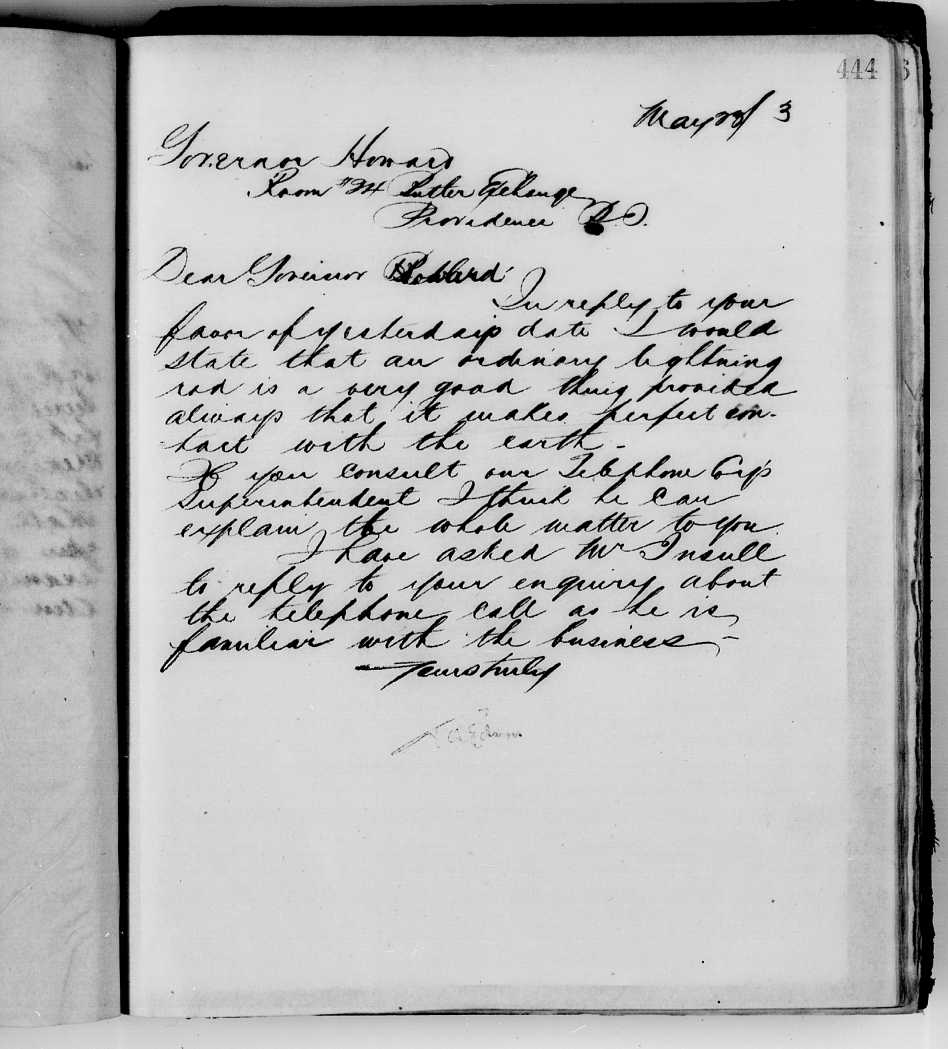 444
May 23/ 3
Governor Howard
Room #24 Butler Exchange
Providence R.I.
Dear Governor Howard:
In reply to your
favor of yesterday's date I would
state that an ordinary lightning
rod is a very good thing provided
always that it makes perfect con-
tact with the earth -
If you consult our Telephone Co's
Superintendent I think he can
explain the whole matter to you
I have asked Mr Insull
to reply to your enquiry about
the telephone call as he is
familiar with the business -
Yours truly
T A Edison